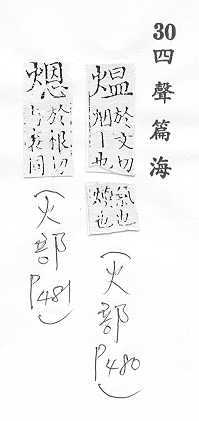 30
四聲篇海
煴
於文切
烟丨也
氣也
也
(火部
P480)
煾
於根切
同
(火部
P481)